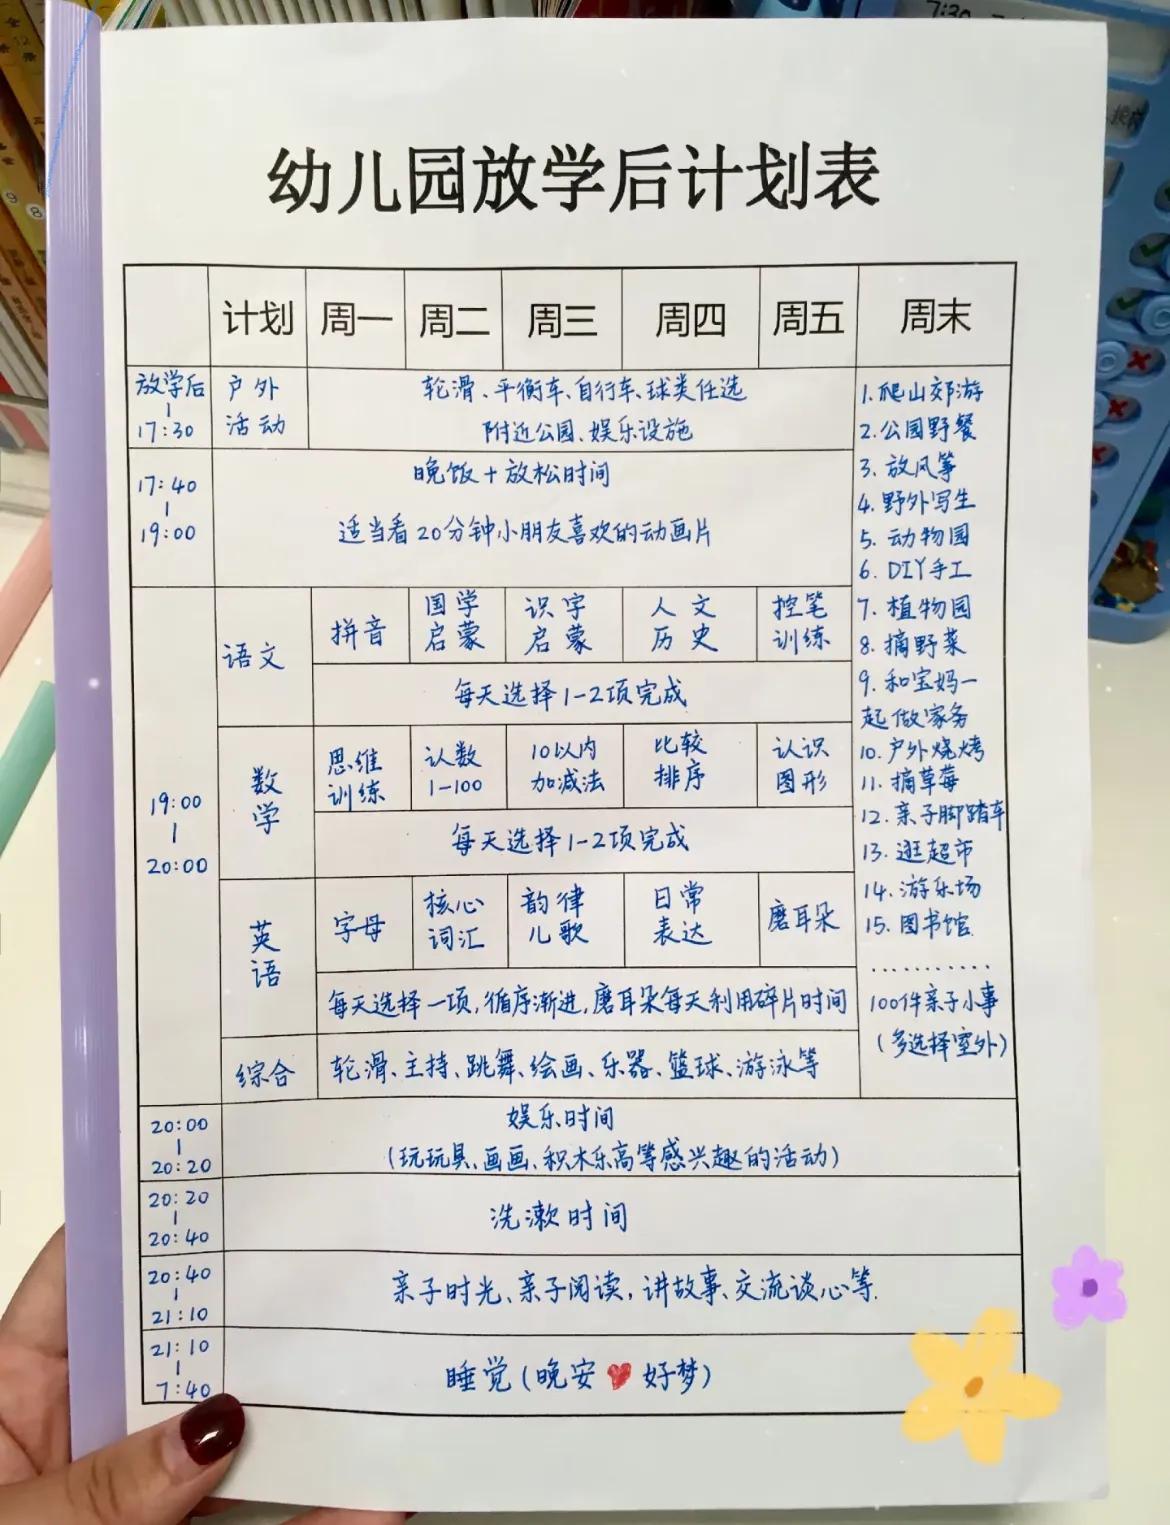 7:30
幼儿园放学后计划表
计划 周一 周二 周三 周四 周五 周末
放学后
|
17:30
户外
活动
轮滑、平衡车、自行车、球类任选
附近公园、娱乐设施
17:40
|
19:00
晚饭+放松时间
适当看20分钟小朋友喜欢的动画片
19:00
|
20:00
语文
拼音
国学
启蒙
识字
启蒙
人文
历史
控笔
训练
每天选择1-2项完成
数
学
思维
训练
认数
1-100
10以内
加减法
比较
排序
认识
图形
每天选择1-2项完成
英
语
字母
核心
词汇
韵律
儿歌
日常
表达
磨耳朵
每天选择一项,循序渐进,磨耳朵每天利用碎片时间
综合
轮滑、主持、跳舞、绘画、乐器、篮球、游泳等
1.爬山郊游
2.公园野餐
3.放风筝
4.野外写生
5.动物园
6.DIY手工
7.植物园
8.摘野菜
9.和宝妈一
起做家务
10.户外烧烤
11.摘草莓
12.亲子脚踏车
13.逛超市
14.游乐场
15.图书馆
...........
100件亲子小事
(多选择室外)
20:00
|
20:20
娱乐时间
(玩玩具、画画、积木乐高等感兴趣的活动)
20:20
|
20:40
洗漱时间
20:40
|
21:10
亲子时光、亲子阅读,讲故事、交流谈心等.
21:10
|
7:40
睡觉(晚安❤好梦)